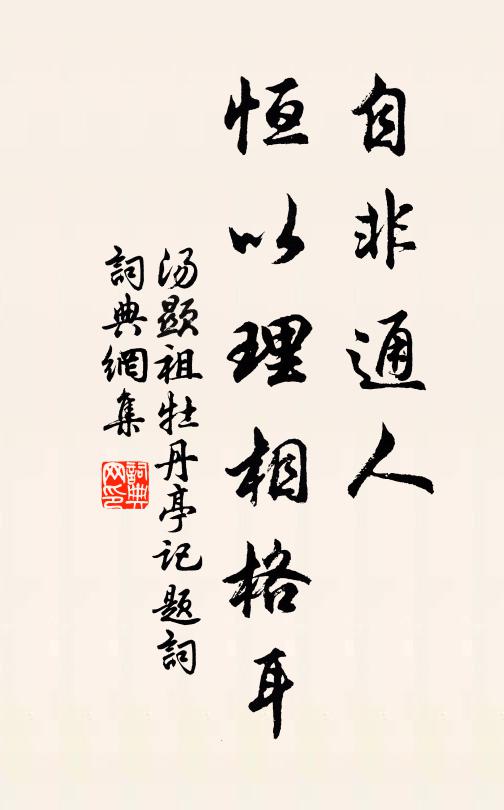 自非通人
恒以理相格耳
汤顯祖牡丹亭记題詞
詞典網集
詞典網印